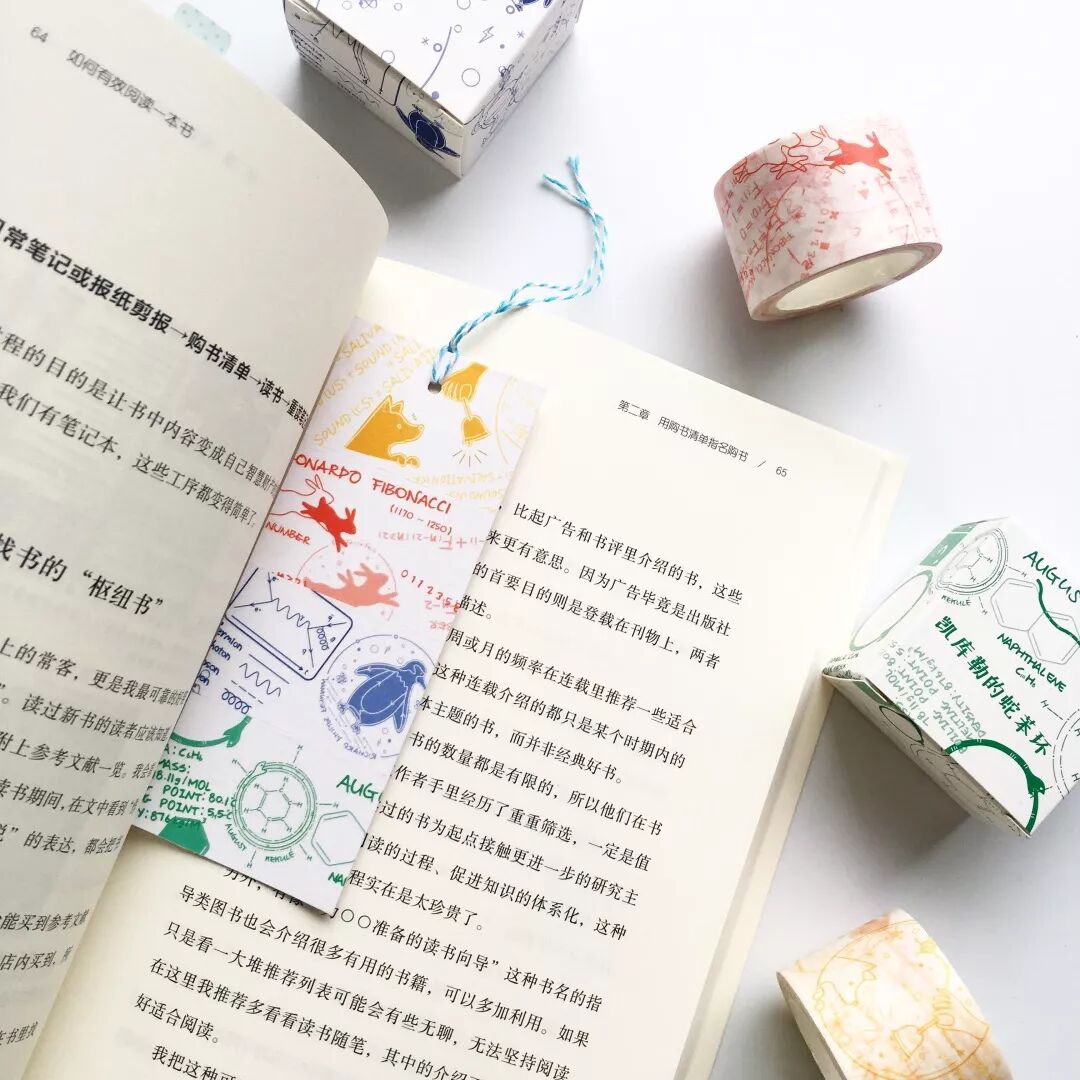 64 如何有效阅读一本书
常笔记或报纸剪报→购书清单→读书→重读
程的目的是让书中内容变成自己智慧财产
我们有笔记本,这些工序都变得简单了。
找书的“枢纽书”
上的常客,更是我最可靠的
。读过新书的读者应该知道
附上参考文献一览。我会
读书期间,在文中看到
说”的表达,都会把
能买到参考文献
店内买到,
SALIVATION
SOUND (CS)
SALIVATION
LEONARDO FIBONACCI
(1170 - 1250)
NUMBER
0 1 1 2 3 5 8
AUGUST
KEKULE
C₆H₆
MASS:
78.11g/MOL
POINT: 80.1°C
G POINT: 5.5°C
第二章 用购书清单指名购书 / 65
,比起广告和书评里介绍的书,这些
来更有意思。因为广告毕竟是出版社
的首要目的则是登载在刊物上,两者
描述。
周或月的频率在连载里推荐一些适合
这种连载介绍的都只是某个时期内的
本主题的书,而并非经典好书。
书的数量都是有限的,所以他们在书
作者手里经历了重重筛选,一定是值
过的书为起点接触更进一步的研究主
阅读的过程、促进知识的体系化,这种
程实在是太珍贵了。
的〇〇准备的读书向导”这种书名的指
导类图书也会介绍很多有用的书籍,可以多加利用。如果
只是看一大堆推荐列表可能会有些无聊,无法坚持阅读
在这里我推荐多看看读书随笔,其中的介绍
好适合阅读。
我把这种可
AUGUS
KEKULE
NAPHTHALENE
C₁₀H₈
凯库勒的蛇苯环